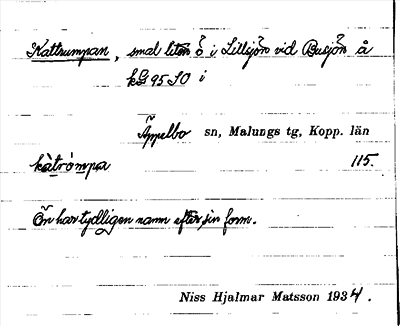 Kattrumpan, smal liten ö i Lillsjön vid Busjön å
kbl 95 SO i
Äppelbo sn, Malungs tg, Kopp. län
kàtrómpa 115.
Ön har tydligen namn efter sin form.
Niss Hjalmar Matsson 1934.